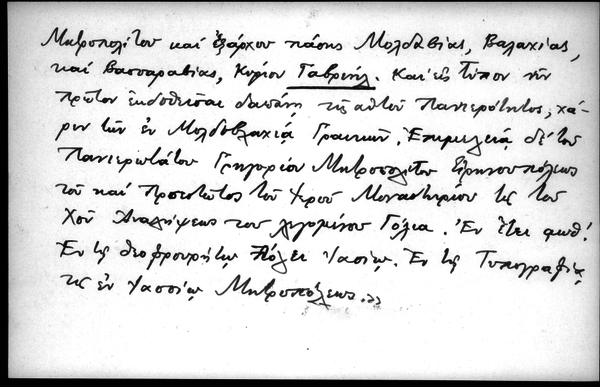 Μητροπολίτου καί ἐξάρχου πάσης Μολδαβίας, Βαλαχίας,
καί Βασσαραβίας, Κυρίου Γαβριήλ. Καί εἰς τύπον νῦν
πρῶτον ἐκδοθεῖσαι δαπάνῃ τῆς αὐτοῦ Πανιερότητος, χά-
ριν τῶν ἐν Μολδοβλαχίᾳ Γραικῶν. Ἐπιμελείᾳ δέ τοῦ
Πανιερωτάτου Γρηγορίου Μητροπολίτου Εἰρηνουπόλεως
τοῦ καί Προεστῶτος τοῦ Ἱεροῦ Μοναστηρίου τῆς τοῦ
Χοῦ Ἀναλήψεως του λεγομένου Γόλια. Ἐν ἔτει
Ἐν τῇ θεοφρουρήτῳ Πόλει Ἰασίῳ. Ἐν τῇ Τυπογραφίᾳ
τῆς ἐν Ἰασσίῳ Μητροπόλεως.»